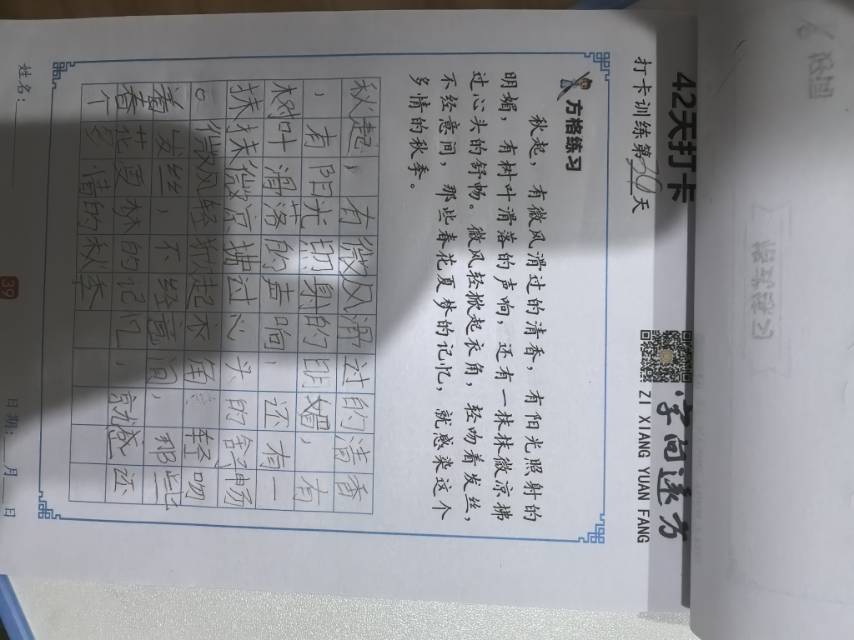 42天打卡
字向远方
ZI XIANG YUAN FANG
打卡训练第30天
方格练习
秋起，有微风滑过的清香，有阳光照射的
明媚，有树叶滑落的声响，还有一抹抹微凉拂
过心头的舒畅。微风轻掀起衣角，轻吻着发丝，
不经意间，那些春花夏梦的记忆，就感染这个
多情的秋季。
秋起，有微风滑过的清香
，有阳光照射的明媚，有
树叶滑落的声响，还有一
抹抹微凉拂过心头的舒畅
。微风轻掀起衣角，轻吻
着发丝，不经意间，那些
春花夏梦的记忆，就感还
个多情的秋季
姓名：
39
日期：月日